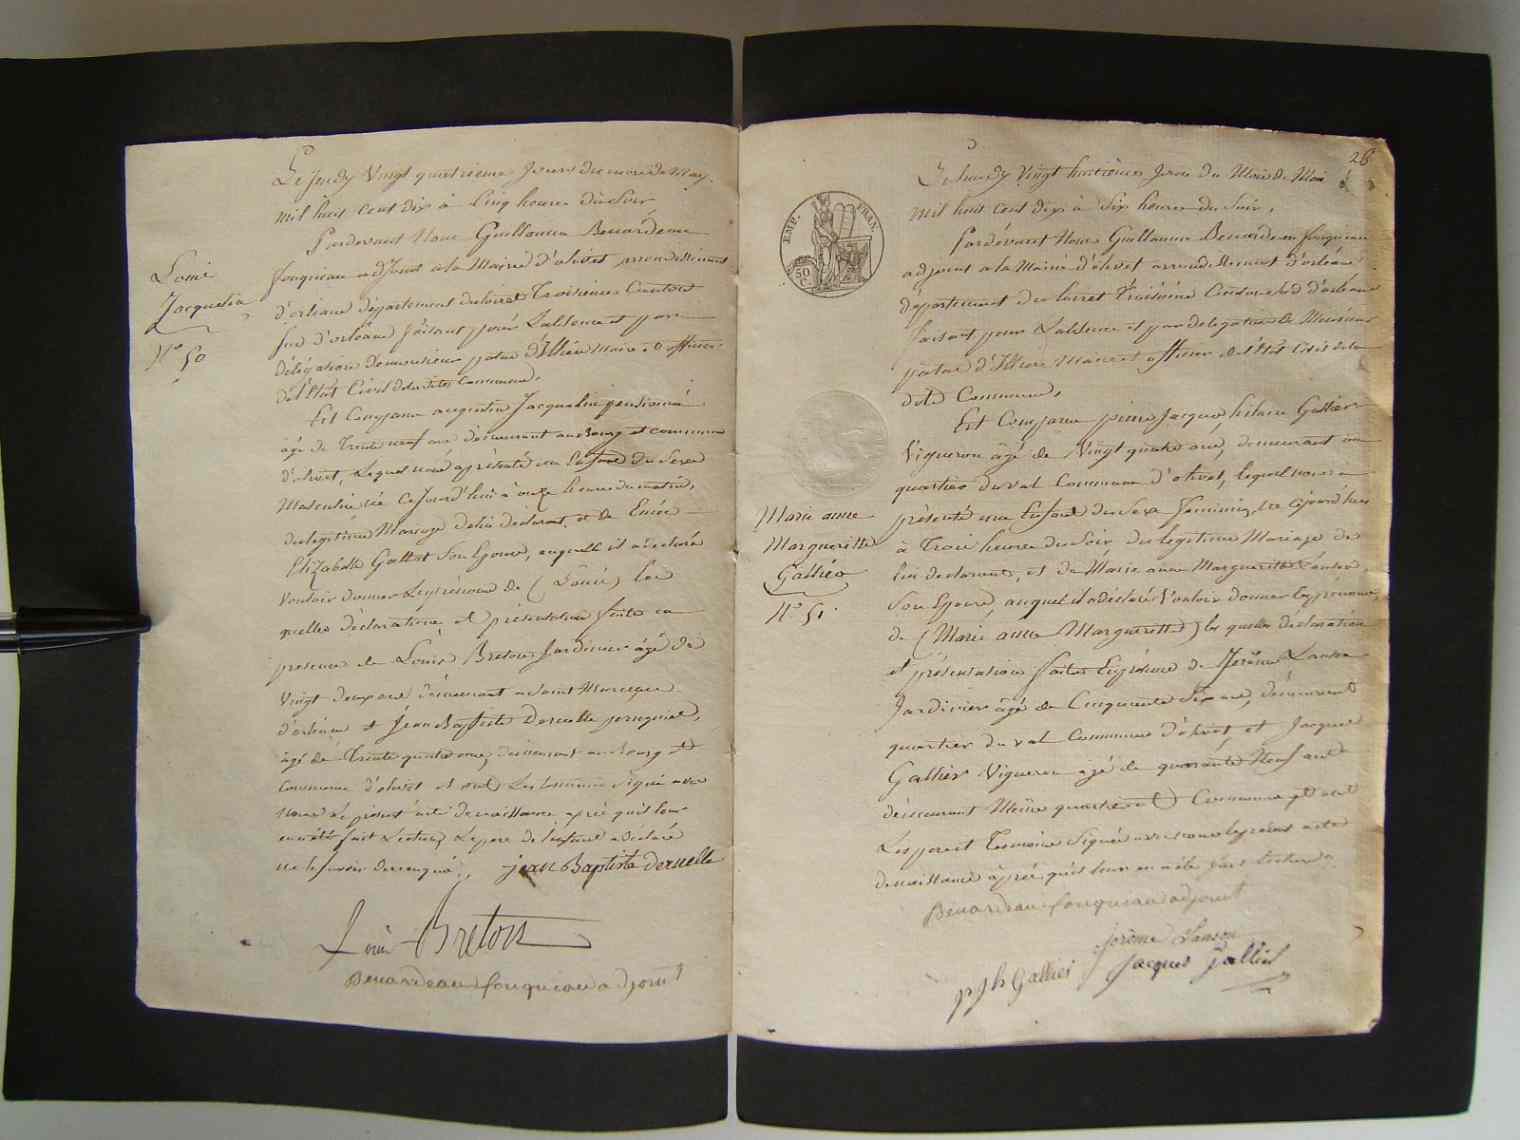 Le Jeudy Vingt quatrieme Jour du mois de May
mil huit cent dix à Cinq heures du Soir
Pardevant Nous Guillaume Benardeau
fouqueau adjoint à la Mairie d'olivet arrondissement
d'orléans département du loiret Troisième Canton
sud d'orléans faisant pour L'absence et par
délégation de monsieur patas d'Illiers Maire et officier
de l'État Civil de ladite Commune.
Est Comparu augustin Jacquelin pensionné
âgé de Trente neuf ans demeurant au Bourg et commune
d'olivet, Lequel nous a présenté un Enfant du Sexe
Masculin né Cejourd'hui à onze heures du matin,
du legitime Mariage de lui déclarant, et de
Elizabeth Son Epouse, auquel il a déclaré
Vouloir donner Les prénoms de (Louis) les
quelles déclaration et présentation faite en
presence de Louis Breton Jardinier âgé de
Vingt deux ans demeurant à Saint Marceau
d'orléans et Jean Baptiste Deruelle perruquier,
âgé de Trente quatre ans, demeurant au Bourg et
Commune d'olivet et ont Les témoins Signé avec
nous Le présent acte de naissance après qu'il leur
en a été fait Lecture, Le pere de l'enfant a déclaré
ne le savoir de ce enquis.
jean Baptiste deruelle
Louis Breton
Benardeau fouqueau adjoint
Louis
Jacquelin
N.° 50
28
EMP. FRAN.
50 C.
Le Lundy Vingt huitième Jour du Mois de Mai
mil huit cent dix à Six heures du Soir.
Pardevant Nous Guillaume Benardeau fouqueau
adjoint à la Mairie d'olivet arrondissement d'orléans
département du loiret Troisième Canton Sud d'orléans
faisant pour L'absence et par délégation de Monsieur
patas d'Illiers Maire et officier de l'État Civil de la
dite Commune.
Est Comparu pierre Jacques hilaire Gallier
Vigneron âgé de Vingt quatre ans, demeurant au
quartier du val Commune d'olivet, lequel nous a
présenté un Enfant du Sexe feminin, né cejourd'hui
à Trois heures du Soir du legitime Mariage de
lui declarant, et de Marie anne Margueritte Lanson
Son Epouse, auquel il a déclaré Vouloir donner les prénoms
de (Marie anne Margueritte) les quelles déclaration
et présentation faites En présence de Jerôme Lanson
Jardinier âgé de Cinquante Six ans, demeurant
quartier du val Commune d'olivet, et Jacques
Gallier Vigneron âgé de quarante Neuf ans
demeurant Même quartier et Commune et ont
Les pere et Temoins Signé avec nous le présent acte
de naissance après qu'il leur en a été fait Lecture.
Benardeau fouqueau adjoint
jerôme Lanson
p j h Gallier
Jacques Gallier
Marie anne
Margueritte
Gallier
N.° 51.